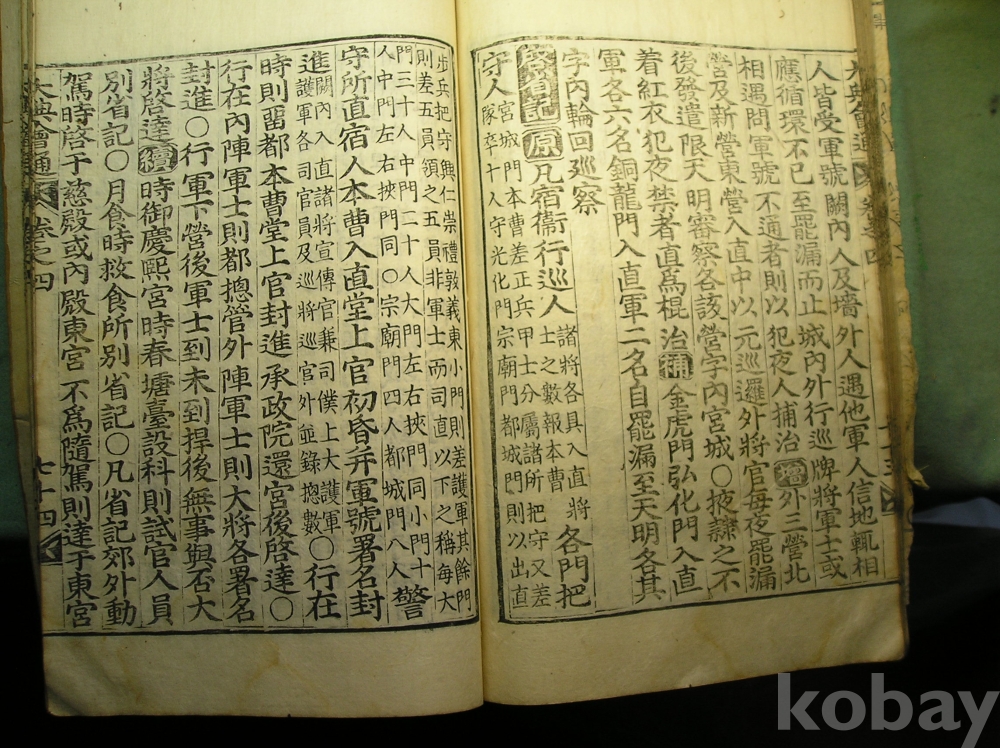 大典會通 卷之四
人皆受軍號闕內人及墻外人遇他軍人信地輒相
應循環不已至罷漏而止城內外行巡牌將軍士或
相遇問軍號不通者則以犯夜人捕治增外三營北
營及新營東營入直中以元巡邏外將官每夜罷漏
後發遣限天明審察各該營字內宮城○掖隷之不
着紅衣犯夜禁者直爲棍治補金虎門弘化門入直
軍各六名銅龍門入直軍二名自罷漏至天明各其
字內輪回巡察
省記原凡宿衞行巡人諸將各具入直將士之數報本曹各門把
守人宮城門本曹差正兵甲士分屬諸所把守又差隊卒十人守光化門宗廟門都城門則以出直
步兵把守興仁崇禮敦義東小門則差護軍其餘門則差五員領之五員非軍士而司直以下之稱每大
門三十人中門二十人大門左右挾門同小門十人中門左右挾門同○宗廟門四人都城門八人警
守所直宿人本曹入直堂上官初昏幷軍號署名封
進闕內入直諸將宣傳官兼司僕上大護軍護軍各司官員及巡將巡官外並錄摠數○行在
時則留都本曹堂上官封進承政院還宮後啓達○
行在內陣軍士則都摠管外陣軍士則大將各署名
封進○行軍下營後軍士到未到捍後無事與否大
將啓達續時御慶熙宮時春塘臺設科則試官人員
別省記○月食時救食所別省記○凡省記郊外動
駕時啓于慈殿或內殿東宮不爲隨駕則達于東宮
大典會通 卷之四 七十四
kobay